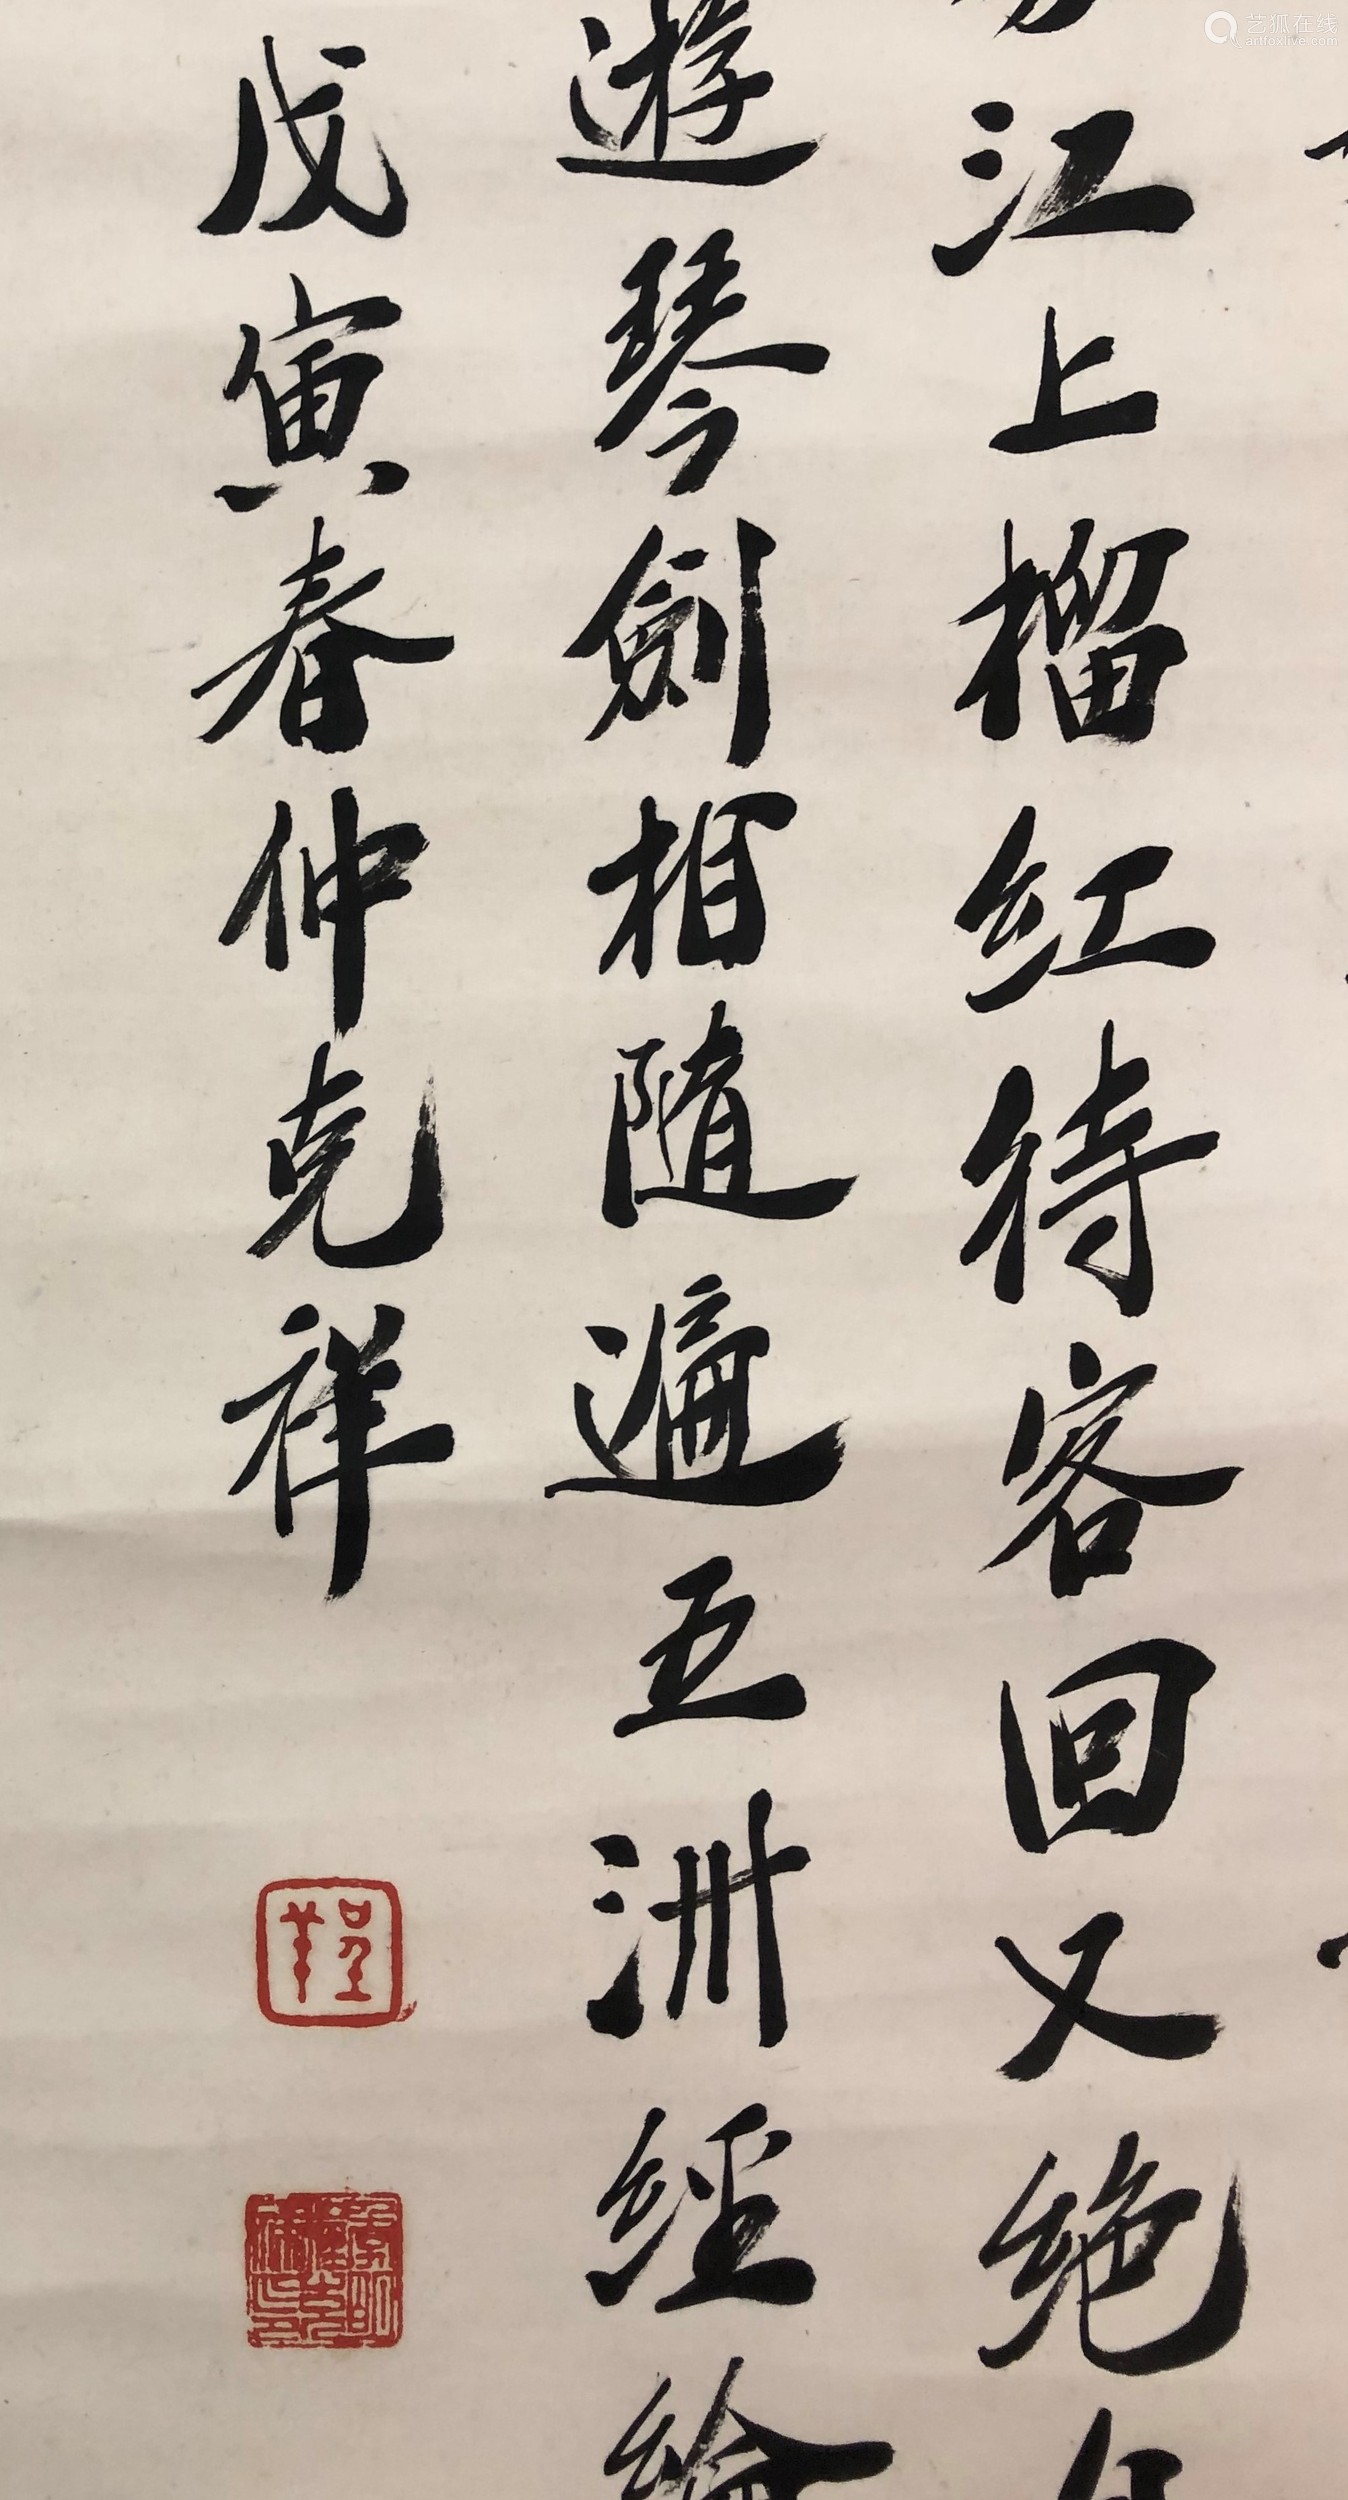 江上榴紅待客回又絶
遊琴劍相隨遍五洲經綸
戊寅春仲克祥
艺狐在线
artfoxlive.com